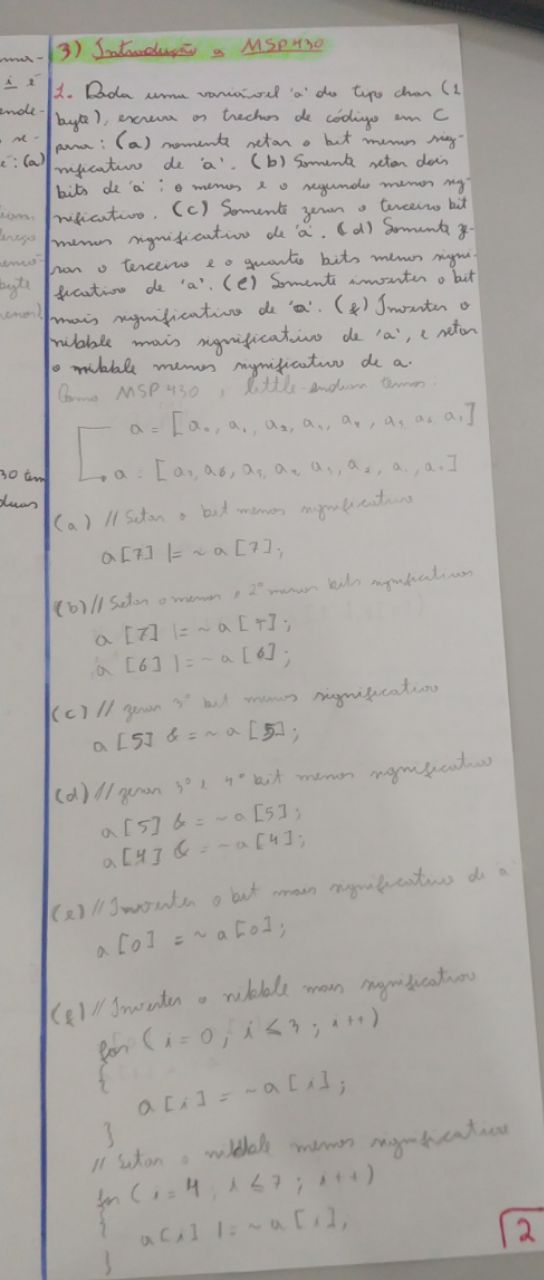 3) Introdução a MSP430
1. Dada uma variável 'a' do tipo char (1
byte), escreva os trechos de código em C
para: (a) somente setar o bit menos sig-
nificativo de 'a'. (b) Somente setar dois
bits de 'a': o menos e o segundo menos sig-
nificativo. (c) Somente zerar o terceiro bit
menos significativo de 'a'. (d) Somente ze-
rar o terceiro e o quarto bits menos signi-
ficativo de 'a'. (e) Somente inverter o bit
mais significativo de 'a'. (f) Inverter o
nibble mais significativo de 'a', e setar
o nibble menos significativo de a.
Como MSP430, little-endian temos:
a = [a₀, a₁, a₂, a₃, a₄, a₅ a₆ a₇]
a = [a₇, a₆, a₅, a₄, a₃, a₂, a₁, a₀]
(a) // Setar o bit menos significativo
a[7] |= ~ a[7];
(b) // Setar o menor e 2º menor bits significativos
a [7] |= ~ a[7];
a [6] |= ~ a[6];
(c) // zerar 3º bit menos significativo
a[5] & = ~ a[5];
(d) // zerar 3º e 4º bit menos significativo
a[5] & = ~ a[5];
a[4] & = ~ a[4];
(e) // Inverter o bit mais significativo de a
a[0] = ~ a[0];
(f) // Inverter o nibble mais significativo
for (i = 0; i ≤ 3; i++)
{
a[i] = ~ a[i];
}
// Setar o nibble menos significativo
for (i = 4; i ≤ 7; i++)
{
a[i] |= ~ a[i];
}
2
mor-
i é
ende-
se-
e: (a)
dereço
byte
menor)
30 tem
duas